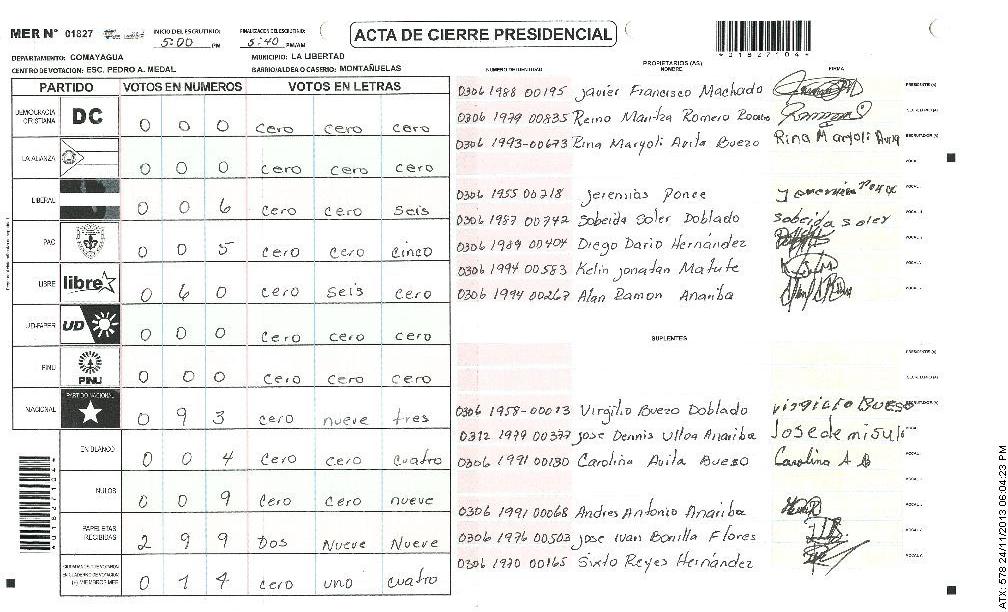 MER N° 01827
INICIO DEL ESCRUTINIO: 5:00 PM
FINALIZACION DEL ESCRUTINIO: 5:40 PM/AM
ACTA DE CIERRE PRESIDENCIAL
01827104
DEPARTAMENTO: COMAYAGUA
MUNICIPIO: LA LIBERTAD
CENTRO DE VOTACION: ESC. PEDRO A. MEDAL
BARRIO/ALDEA O CASERIO: MONTAÑUELAS
PARTIDO VOTOS EN NUMEROS VOTOS EN LETRAS
DEMOCRACIA CRISTIANA DC 0 0 0 cero cero cero
LA ALIANZA 0 0 0 cero cero cero
LIBERAL 0 0 6 cero cero seis
PAC 0 0 5 cero cero cinco
LIBRE libre 0 6 0 cero seis cero
UD-FAPER UD 0 0 0 cero cero cero
PINU PINU 0 0 0 cero cero cero
NACIONAL PARTIDO NACIONAL 0 9 3 cero nueve tres
EN BLANCO 0 0 4 cero cero cuatro
NULOS 0 0 9 cero cero nueve
PAPELETAS RECIBIDAS 2 9 9 Dos Nueve Nueve
(+) MIEMBROS MER 0 1 4 cero uno cuatro
NUMERO DE IDENTIDAD
PROPIETARIOS (AS)
NOMBRE
FIRMA
0306 1988 00195 Javier Francisco Machado
PRESIDENTE (A)
0306 1979 00835 Reino Maritza Romero
SECRETARIO (A)
0306 1993-00673 Rina Maryoli Avila Buezo Rina Maryoli Avila
ESCRUTADOR (A)
0306 1955 00218 Jeremias Ponce Jeremias Ponce
0306 1987 00742 Sobeida Soler Doblado sobeida soler
0306 1989 00404 Diego Dario Hernández
0306 1994 00583 Kelin Jonatan Matute
0306 1994 00267 Alan Ramon Anariba
SUPLENTES
PRESIDENTE (A)
SECRETARIO (A)
0306 1958-00013 Virgilio Buezo Doblado virgilio Bueso
ESCRUTADOR (A)
0312 1979 00377 Jose Dennis Ulloa Anariba
0306 1991 00130 Carolina Avila Bueso Carolina A B
0306 1991 00068 Andres Antonio Anariba
0306 1976 00503 Jose Ivan Bonilla Flores
0306 1970 00165 Sixto Reyes Hernández
ATX: 578 24/11/2013 06:04:23 PM